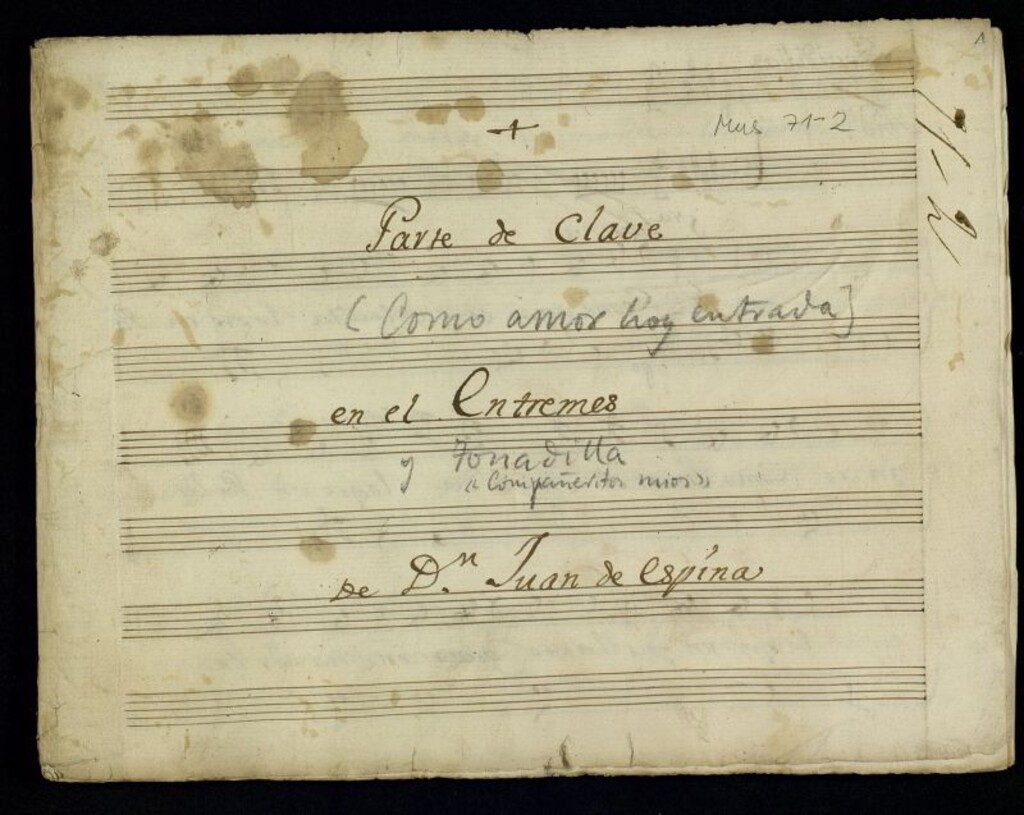 1
Mus 71-2
71-2
Parte de Clave
(Como amor hoy entrada]
en el Entremes
y Tonadilla
"Compañeritos mios"
De D.n Juan de Espina